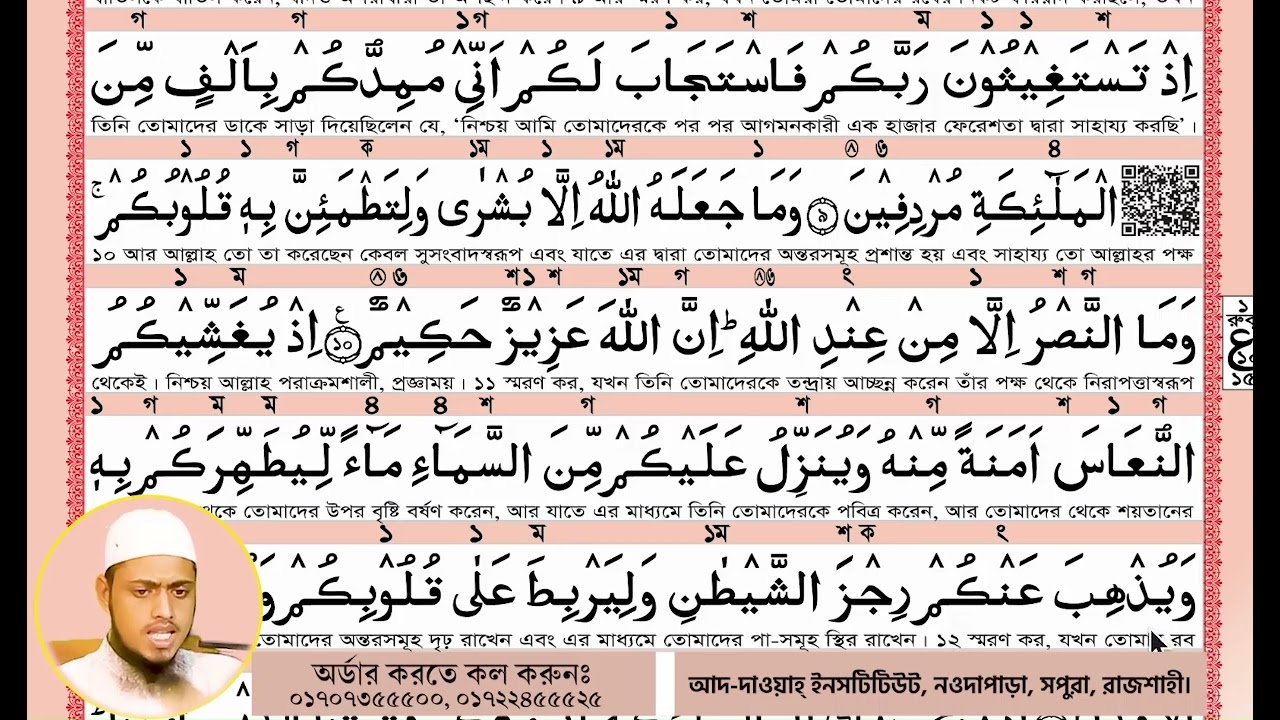 গ গ ১গ ১ শ ম ১ ১ শ
اِذْ تَسْتَغِيْثُوْنَ رَبَّكُمْ فَاسْتَجَابَ لَكُمْ اَنِّيْ مُمِدُّكُمْ بِاَلْفٍ مِّنَ
তিনি তোমাদের ডাকে সাড়া দিয়েছিলেন যে, ‘নিশ্চয় আমি তোমাদেরকে পর পর আগমনকারী এক হাজার ফেরেশতা দ্বারা সাহায্য করছি’।
১ ১ গ ক ১ম ১ ১ম ১ ৬ ৪
الْمَلٰٓئِكَةِ مُرْدِفِيْنَ ۝٩ وَمَا جَعَلَهُ اللّٰهُ اِلَّا بُشْرٰى وَلِتَطْمَئِنَّ بِهٖ قُلُوْبُكُمْ ۚ
১০ আর আল্লাহ তো তা করেছেন কেবল সুসংবাদস্বরূপ এবং যাতে এর দ্বারা তোমাদের অন্তরসমূহ প্রশান্ত হয় এবং সাহায্য তো আল্লাহর পক্ষ
১ ম ৬ শ১ শ ১ম গ ৎ ১ শ গ
وَمَا النَّصْرُ اِلَّا مِنْ عِنْدِ اللّٰهِ ؕ اِنَّ اللّٰهَ عَزِيْزٌ حَكِيْمٌ ۝١٠ اِذْ يُغَشِّيْكُمُ
থেকেই। নিশ্চয় আল্লাহ পরাক্রমশালী, প্রজ্ঞাময়। ১১ স্মরণ কর, যখন তিনি তোমাদেরকে তন্দ্রায় আচ্ছন্ন করেন তাঁর পক্ষ থেকে নিরাপত্তাস্বরূপ
১ গ ম ম ৪ ৪ শ গ শ গ শ ১ গ
النُّعَاسَ اَمَنَةً مِّنْهُ وَيُنَزِّلُ عَلَيْكُمْ مِّنَ السَّمَآءِ مَآءً لِّيُطَهِّرَكُمْ بِهٖ
থেকে তোমাদের উপর বৃষ্টি বর্ষণ করেন, আর যাতে এর মাধ্যমে তিনি তোমাদেরকে পবিত্র করেন, আর তোমাদের থেকে শয়তানের
১ ১ ম ১ম শ ক ৎ
وَيُذْهِبَ عَنْكُمْ رِجْزَ الشَّيْطٰنِ وَلِيَرْبِطَ عَلٰى قُلُوْبِكُمْ وَ
তোমাদের অন্তরসমূহ দৃঢ় রাখেন এবং এর মাধ্যমে তোমাদের পা-সমূহ স্থির রাখেন। ১২ স্মরণ কর, যখন তোমার রব
অর্ডার করতে কল করুনঃ
০১৭০৭৩৫৫৫০০, ০১৭২২৪৫৫৫২৫
আদ-দাওয়াহ্ ইনসটিটিউট, নওদাপাড়া, সপুরা, রাজশাহী।